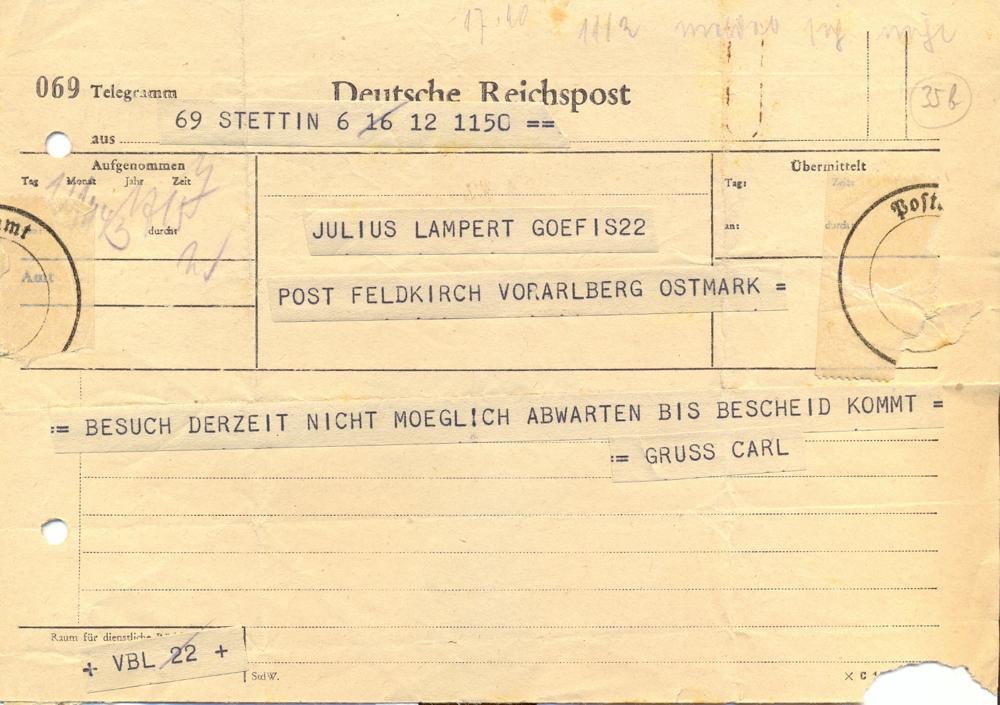 17.40 11/2
35b
069 Telegramm Deutsche Reichspost
69 STETTIN 6 16 12 1150 ==
aus
Aufgenommen
Übermittelt
Tag Monat Jahr Zeit
Tag: Zeit:
JULIUS LAMPERT GOEFIS22
durch
an: durch:
Amt
POST FELDKIRCH VORARLBERG OSTMARK =
:= BESUCH DERZEIT NICHT MOEGLICH ABWARTEN BIS BESCHEID KOMMT =
:= GRUSS CARL
Raum für dienstliche
+ VBL 22 +
StdW.
× C